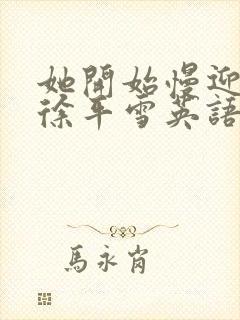 她開始慢迎
徐年雪英語
馬永肖